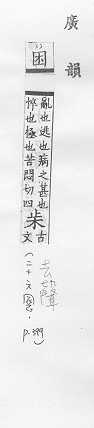 廣韻
11)
困
亂也逃也病之甚也
悴也極也苦悶切四
𣏔
古
文
去聲
(二十六慁.
p.399)